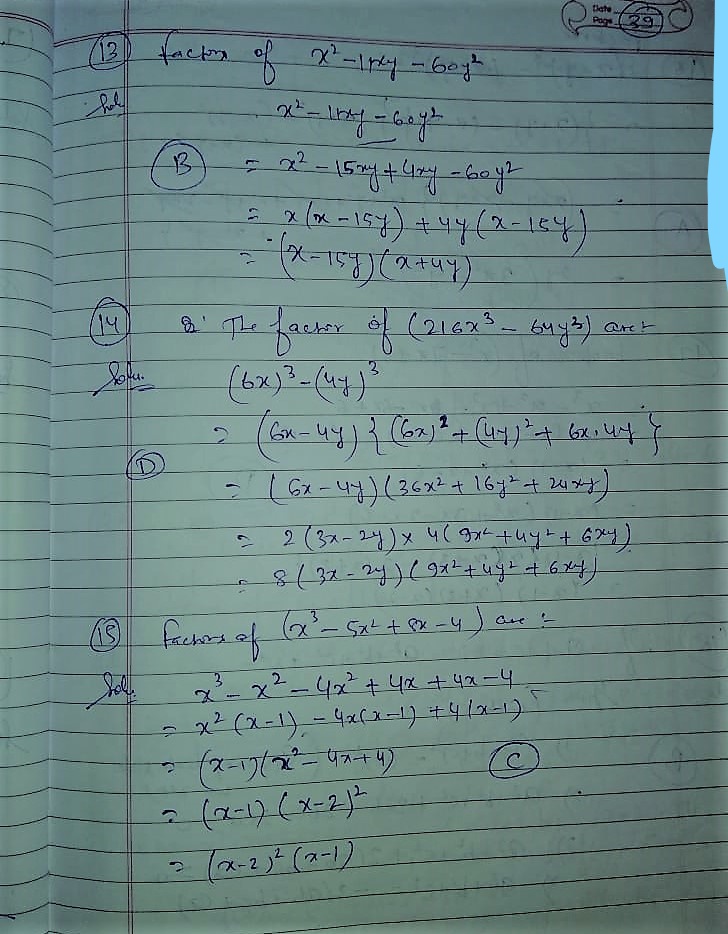 Date
Page 39
(13) factors of x² - 11xy - 60y²
Sol. x² - 11xy - 60y²
(B) = x² - 15xy + 4xy - 60y²
= x(x - 15y) + 4y(x - 15y)
= (x - 15y)(x + 4y)
(14) Q. The factor of (216x³ - 64y³) are :-
Solu. (6x)³ - (4y)³
= (6x - 4y) { (6x)² + (4y)² + 6x.4y }
(D)
= (6x - 4y)(36x² + 16y² + 24xy)
= 2(3x - 2y) × 4(9x² + 4y² + 6xy)
= 8(3x - 2y)(9x² + 4y² + 6xy)
(15) factors of (x³ - 5x² + 8x - 4) are :-
Sol. x³ - x² - 4x² + 4x + 4x - 4
= x²(x - 1) - 4x(x - 1) + 4(x - 1)
= (x - 1)(x² - 4x + 4) (C)
= (x - 1)(x - 2)²
= (x - 2)²(x - 1)